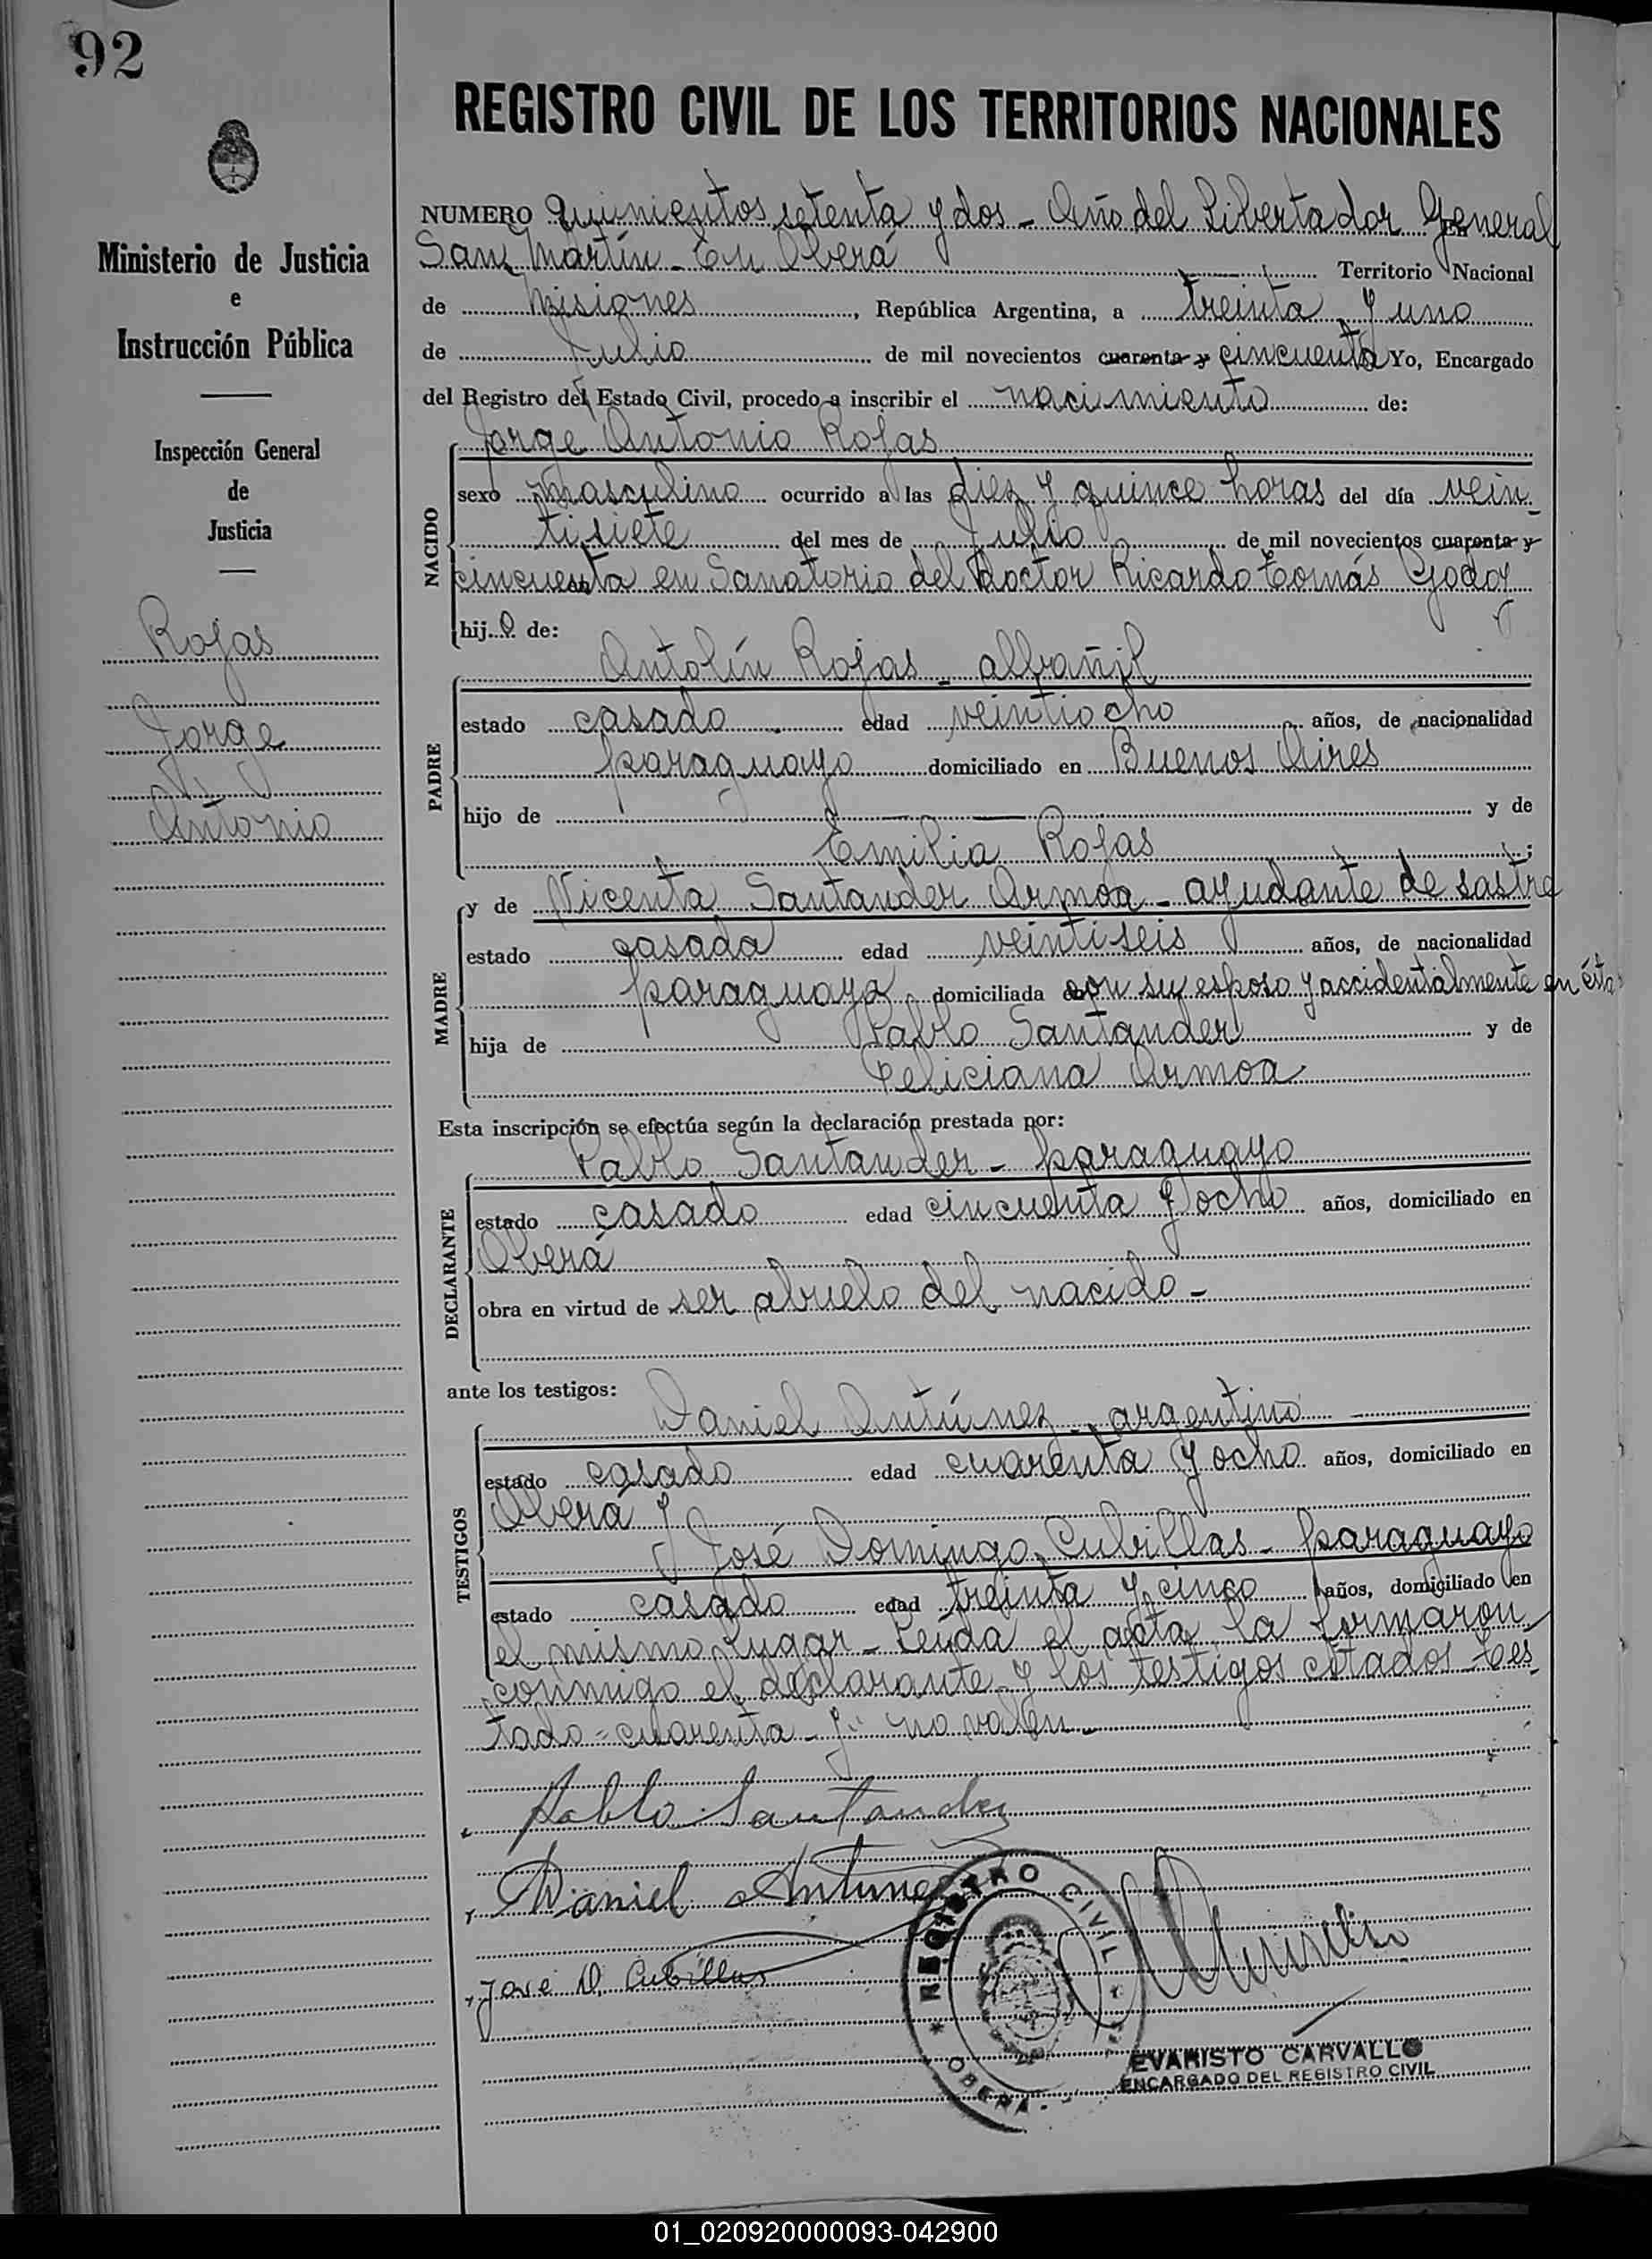 92
REGISTRO CIVIL DE LOS TERRITORIOS NACIONALES
Ministerio de Justicia
e
Instrucción Pública
Inspección General
de
Justicia
Rojas
Jorge
Antonio
NUMERO Quinientos setenta y dos - Año del Libertador General
San Martín - En Oberá Territorio Nacional
de Misiones, República Argentina, a treinta y uno
de Julio de mil novecientos cuarenta y cincuenta Yo, Encargado
del Registro del Estado Civil, procedo a inscribir el nacimiento de:
Jorge Antonio Rojas
NACIDO
sexo masculino ocurrido a las diez y quince horas del día vein-
tisiete del mes de Julio de mil novecientos cuarenta y
cincuenta en Sanatorio del doctor Ricardo Tomás Godoy
hijo de:
Antolín Rojas - albañil
PADRE
estado casado edad veintiocho años, de nacionalidad
paraguayo domiciliado en Buenos Aires
hijo de y de
Emilia Rojas;
MADRE
y de Vicenta Santander Armoa - ayudante de sastre
estado casada edad veintiseis años, de nacionalidad
paraguaya, domiciliada con su esposo y accidentalmente en ésta
hija de Pablo Santander y de
Feliciana Armoa
Esta inscripción se efectúa según la declaración prestada por:
Pablo Santander - paraguayo
DECLARANTE
estado casado edad cincuenta y ocho años, domiciliado en
Oberá
obra en virtud de ser abuelo del nacido -
ante los testigos:
Daniel Antúnez - argentino
TESTIGOS
estado casado edad cuarenta y ocho años, domiciliado en
Oberá y
José Domingo Cubillas - paraguayo
estado casado edad treinta y cinco años, domiciliado en
el mismo lugar - Leída el acta la formaron
conmigo el declarante y los testigos citados - Tes-
tado = cuarenta - y: no valen -
Pablo Santander
Daniel Antunez
José D. Cubillas
REGISTRO CIVIL
* OBERA *
EVARISTO CARVALLO
ENCARGADO DEL REGISTRO CIVIL
01_020920000093-042900